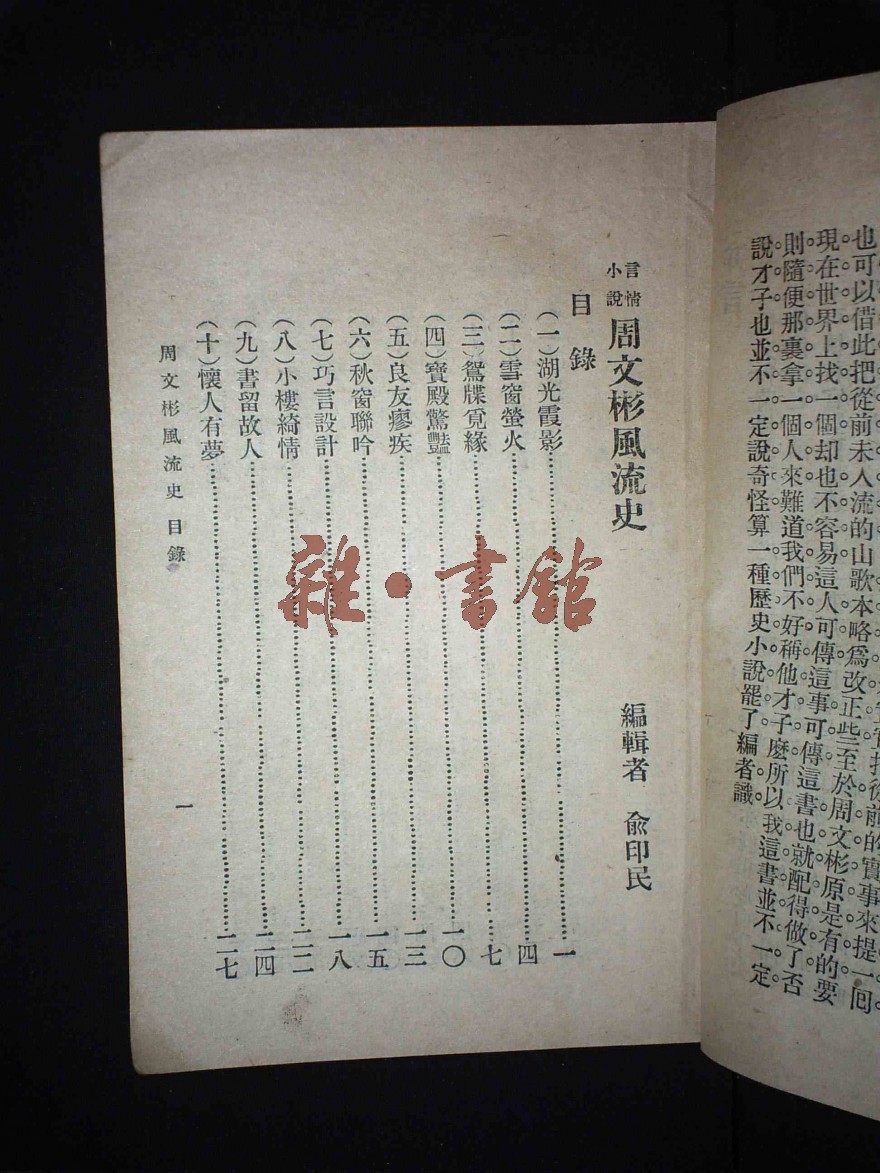 從前的實事來提一囘
也可以借此把從前未入流的山歌本略爲改正些至於周文彬原是有的要
現在世界上找一個却也不容易這人可傳這事可傳這書也就配得做了否
則隨便那裏拿一個人來難道我們不好稱他才子麽所以我這書並不一定
說才子也並不一定說奇怪算一種歷史小說罷了編者識
言情小說 周文彬風流史 編輯者 兪印民
目錄
(一)湖光霞影……一
(二)雪窗螢火……四
(三)鴛牒覓緣……七
(四)寶殿驚豔……一〇
(五)良友瘳疾……一三
(六)秋窗聯吟……一五
(七)巧言設計……一八
(八)小樓綺情……二二
(九)書留故人……二四
(十)懷人有夢……二七
周文彬風流史 目錄
一
雜·書館